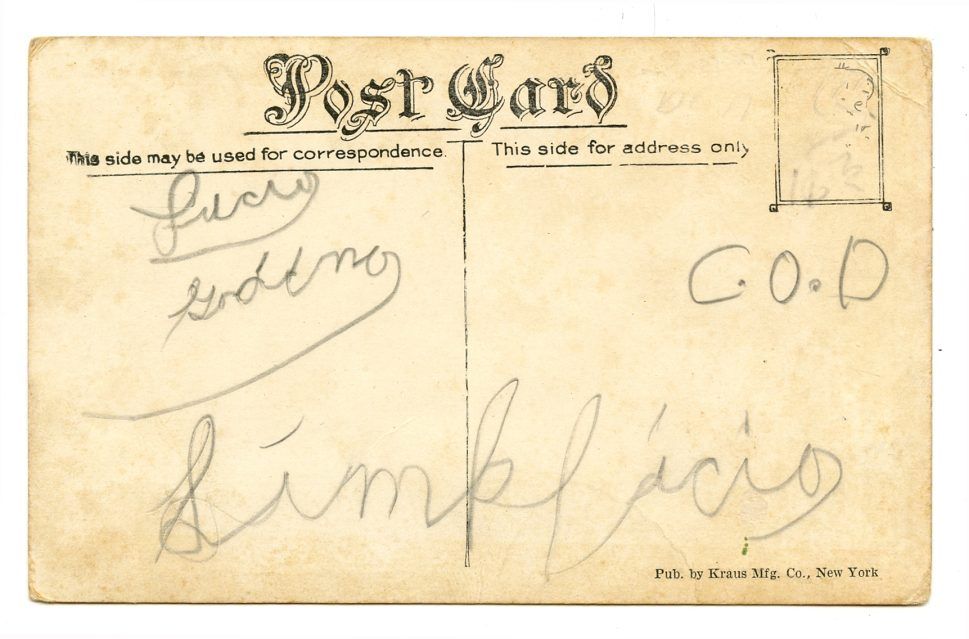 Post Card
This side may be used for correspondence.
This side for address only
Lucio
C.O.D
Simplácio
Pub. by Kraus Mfg. Co., New York